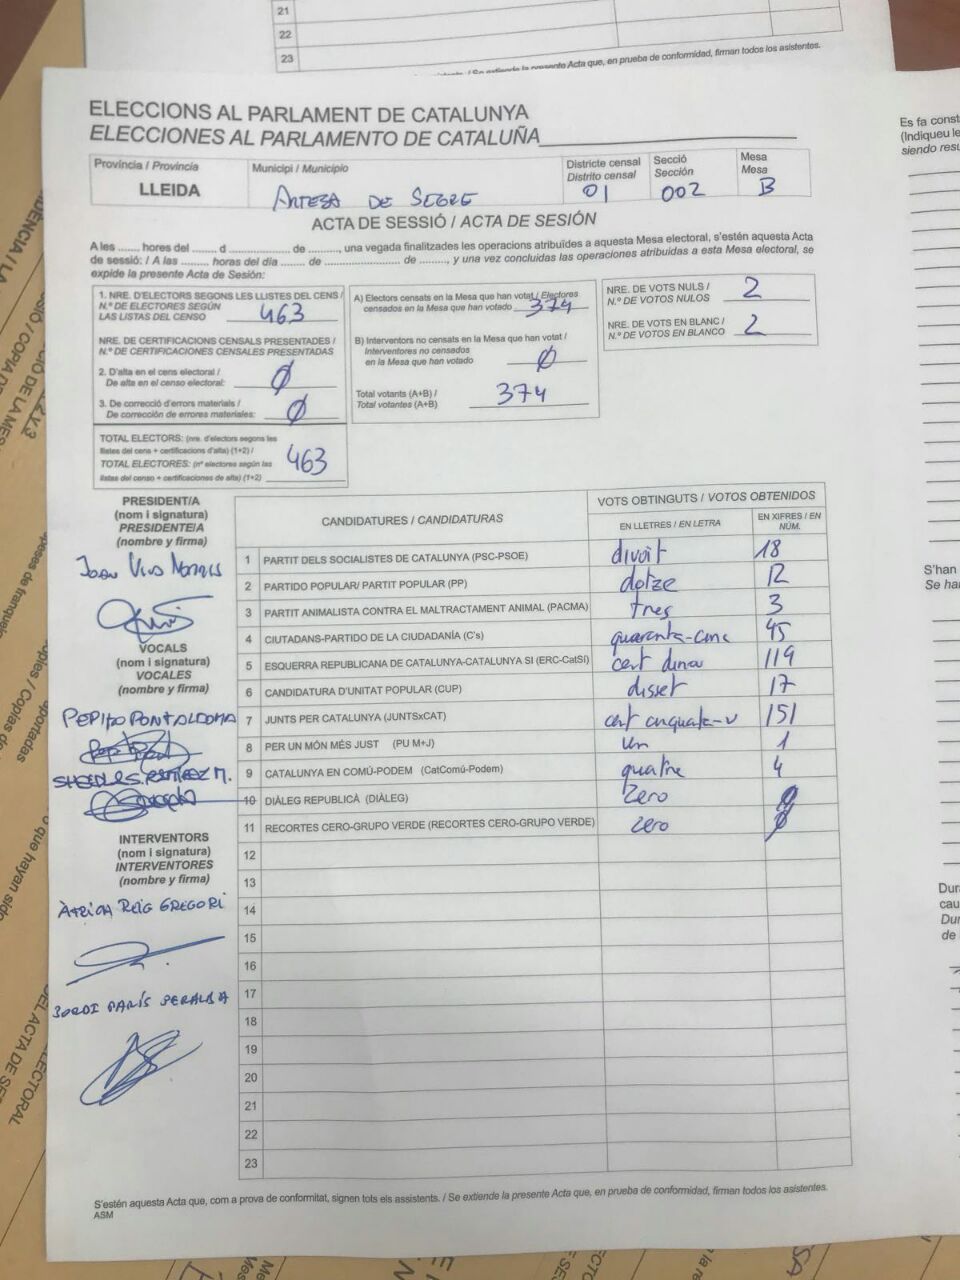 21
22
23
/ Se extiende la presente Acta que, en prueba de conformidad, firman todos los asistentes.
ELECCIONS AL PARLAMENT DE CATALUNYA
ELECCIONES AL PARLAMENTO DE CATALUÑA
Província / Provincia
LLEIDA
Municipi / Municipio
ARTESA DE SEGRE
Districte censal
Distrito censal
01
Secció
Sección
002
Mesa
Mesa
B
ACTA DE SESSIÓ / ACTA DE SESIÓN
A les ....... hores del ....... d ................ de ........, una vegada finalitzades les operacions atribuïdes a aquesta Mesa electoral, s'estén aquesta Acta
de sessió: / A las ........ horas del día ...... de .................. de ........, y una vez concluidas las operaciones atribuidas a esta Mesa electoral, se
expide la presente Acta de Sesión:
1. NRE. D'ELECTORS SEGONS LES LLISTES DEL CENS /
N.º DE ELECTORES SEGÚN
LAS LISTAS DEL CENSO 463
NRE. DE CERTIFICACIONS CENSALS PRESENTADES /
N.º DE CERTIFICACIONES CENSALES PRESENTADAS
2. D'alta en el cens electoral /
De alta en el censo electoral: 0
3. De correcció d'errors materials /
De corrección de errores materiales: 0
TOTAL ELECTORS: (nre. d'electors segons les
llistes del cens + certificacions d'alta) (1+2) /
TOTAL ELECTORES: (nº electores según las
listas del censo + certificaciones de alta) (1+2) 463
A) Electors censats en la Mesa que han votat / Electores
censados en la Mesa que han votado 374
B) Interventors no censats en la Mesa que han votat /
Interventores no censados
en la Mesa que han votado 0
Total votants (A+B) /
Total votantes (A+B) 374
NRE. DE VOTS NULS /
N.º DE VOTOS NULOS 2
NRE. DE VOTS EN BLANC /
N.º DE VOTOS EN BLANCO 2
PRESIDENT/A
(nom i signatura)
PRESIDENTE/A
(nombre y firma)
JOAN
VOCALS
(nom i signatura)
VOCALES
(nombre y firma)
INTERVENTORS
(nom i signatura)
INTERVENTORES
(nombre y firma)
REIG GREGORI
JORDI PARÍS PERALBA
CANDIDATURES / CANDIDATURAS
VOTS OBTINGUTS / VOTOS OBTENIDOS
EN LLETRES / EN LETRA
EN XIFRES / EN NÚM.
1 PARTIT DELS SOCIALISTES DE CATALUNYA (PSC-PSOE) divuit 18
2 PARTIDO POPULAR/ PARTIT POPULAR (PP) dotze 12
3 PARTIT ANIMALISTA CONTRA EL MALTRACTAMENT ANIMAL (PACMA) tres 3
4 CIUTADANS-PARTIDO DE LA CIUDADANÍA (C's) quaranta-cinc 45
5 ESQUERRA REPUBLICANA DE CATALUNYA-CATALUNYA SÍ (ERC-CatSí) cent dinou 119
6 CANDIDATURA D'UNITAT POPULAR (CUP) disset 17
7 JUNTS PER CATALUNYA (JUNTSxCAT) cent cinquata-u 151
8 PER UN MÓN MÉS JUST (PU M+J) un 1
9 CATALUNYA EN COMÚ-PODEM (CatComú-Podem) quatre 4
10 DIÀLEG REPUBLICÀ (DIÀLEG) zero 0
11 RECORTES CERO-GRUPO VERDE (RECORTES CERO-GRUPO VERDE) zero 0
12
13
14
15
16
17
18
19
20
21
22
23
S'estén aquesta Acta que, com a prova de conformitat, signen tots els assistents. / Se extiende la presente Acta que, en prueba de conformidad, firman todos los asistentes.
ASM
Es fa const
(Indiqueu le
siendo resu
S'han
Se ha
Dura
cau
Dur
de